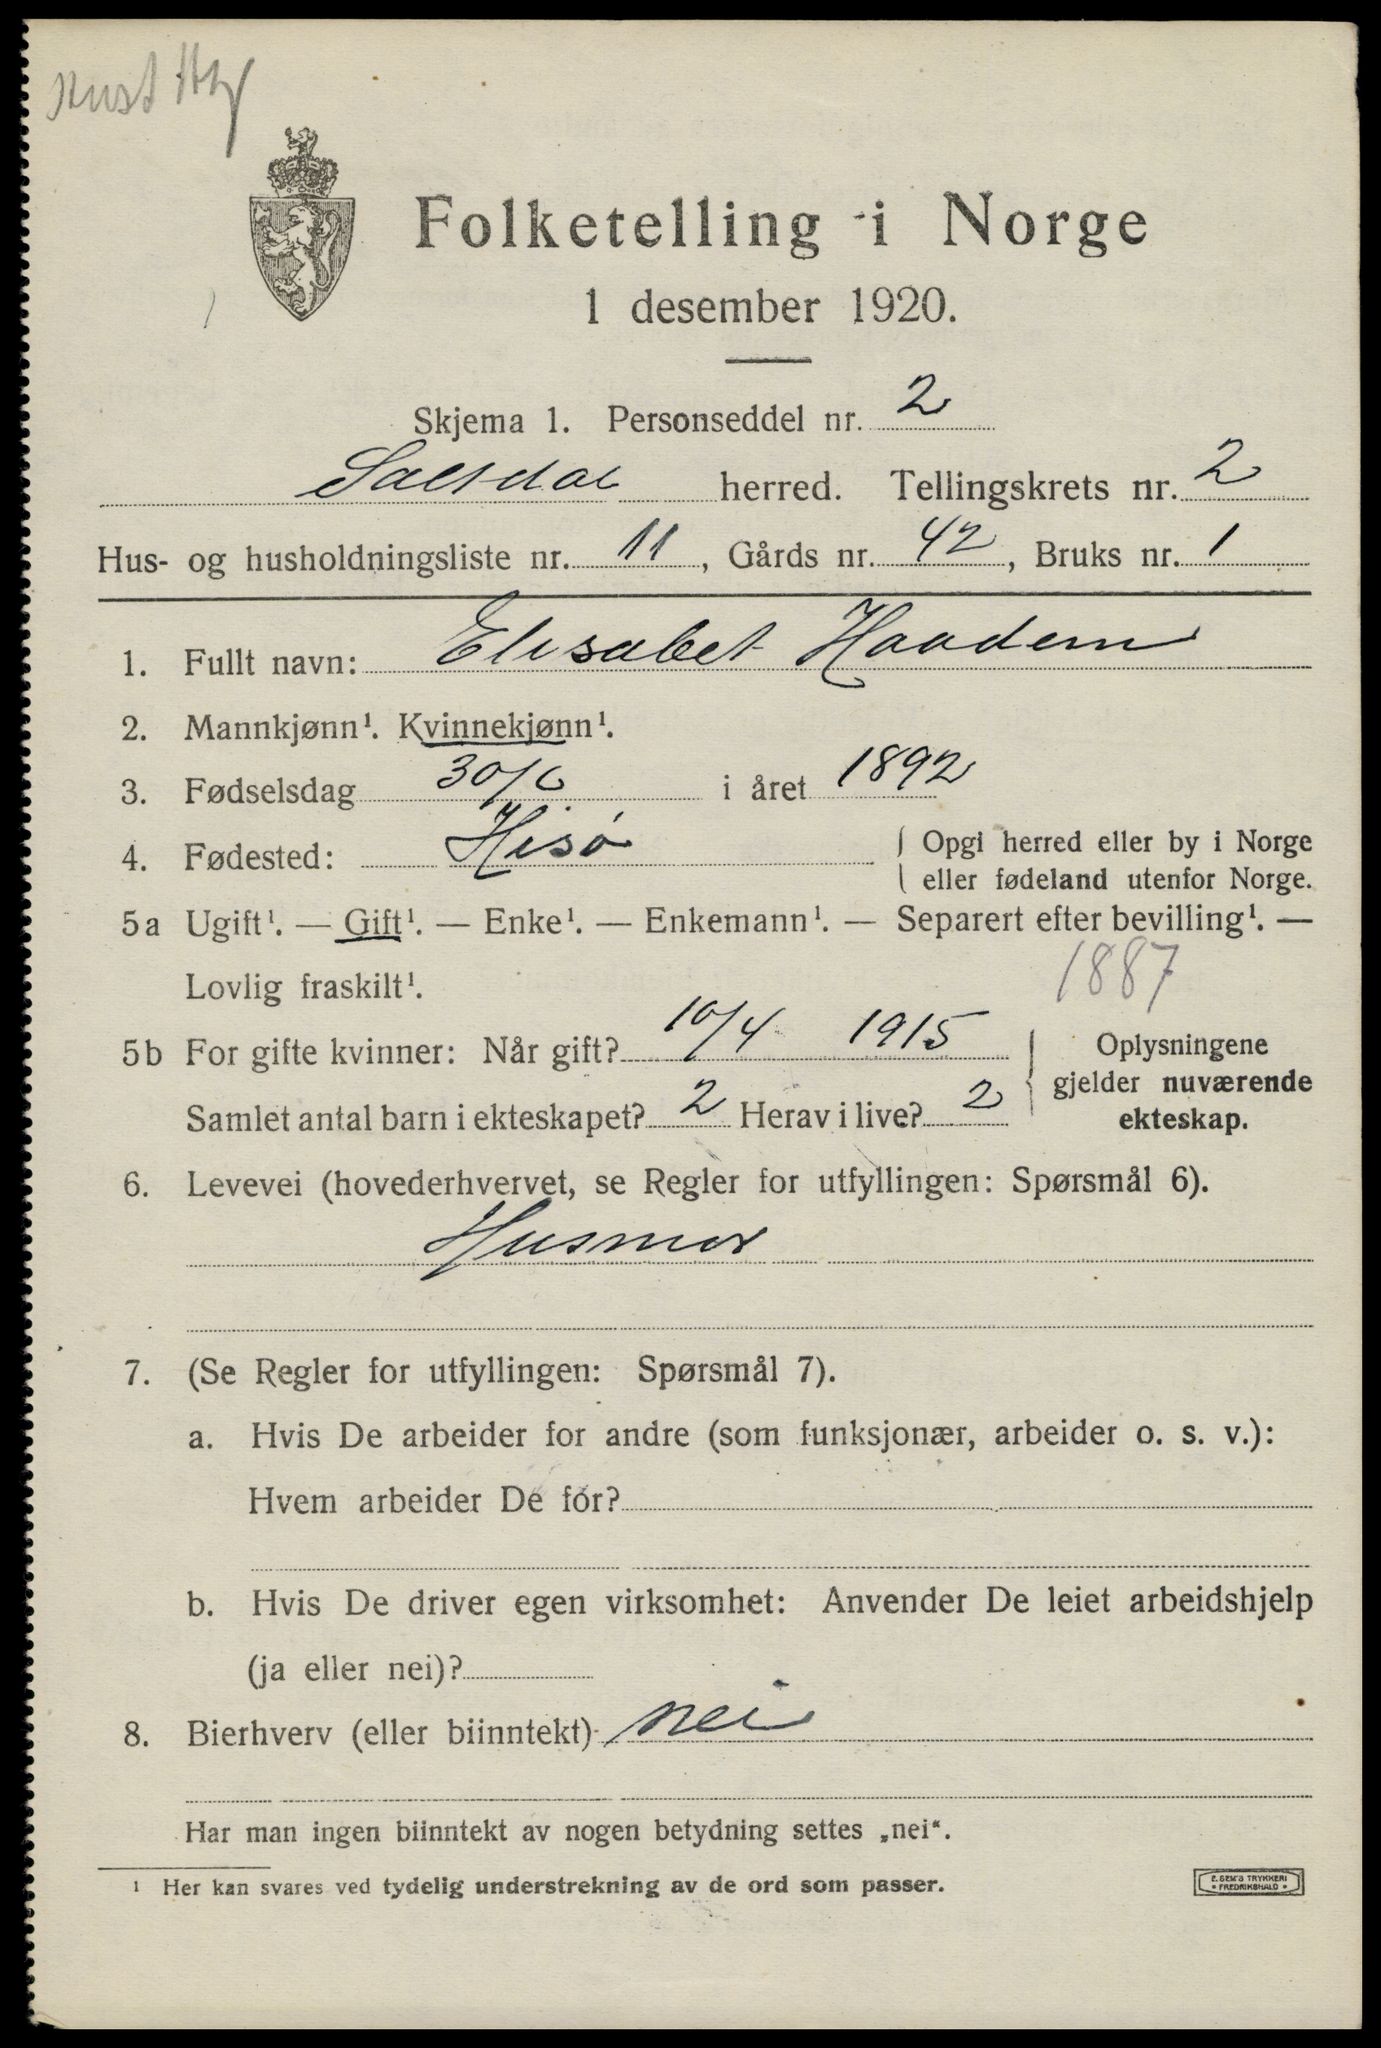 Folketelling i Norge
1 desember 1920.
Skjema 1. Personseddel nr. 2
Saltdal herred. Tellingskrets nr. 2
Hus- og husholdningsliste nr. 11, Gårds nr. 42, Bruks nr. 1
1. Fullt navn: Elisabet Haadem
2. Mannkjønn¹. Kvinnekjønn¹.
3. Fødselsdag 30/6 i året 1892
4. Fødested: Hisø { Opgi herred eller by i Norge
eller fødeland utenfor Norge.
5a Ugift¹. — Gift¹. — Enke¹. — Enkemann¹. — Separert efter bevilling¹. —
Lovlig fraskilt¹. 1887
5b For gifte kvinner: Når gift? 10/4 1915
Samlet antal barn i ekteskapet? 2 Herav i live? 2
Oplysningene
gjelder nuværende
ekteskap.
6. Levevei (hovederhvervet, se Regler for utfyllingen: Spørsmål 6).
Husmor
7. (Se Regler for utfyllingen: Spørsmål 7).
a. Hvis De arbeider for andre (som funksjonær, arbeider o. s. v.):
Hvem arbeider De for?
b. Hvis De driver egen virksomhet: Anvender De leiet arbeidshjelp
(ja eller nei)?
8. Bierhverv (eller biinntekt) nei
Har man ingen biinntekt av nogen betydning settes „nei“.
¹ Her kan svares ved tydelig understrekning av de ord som passer.
E. SEM'S TRYKKERI
• FREDRIKSHALD •